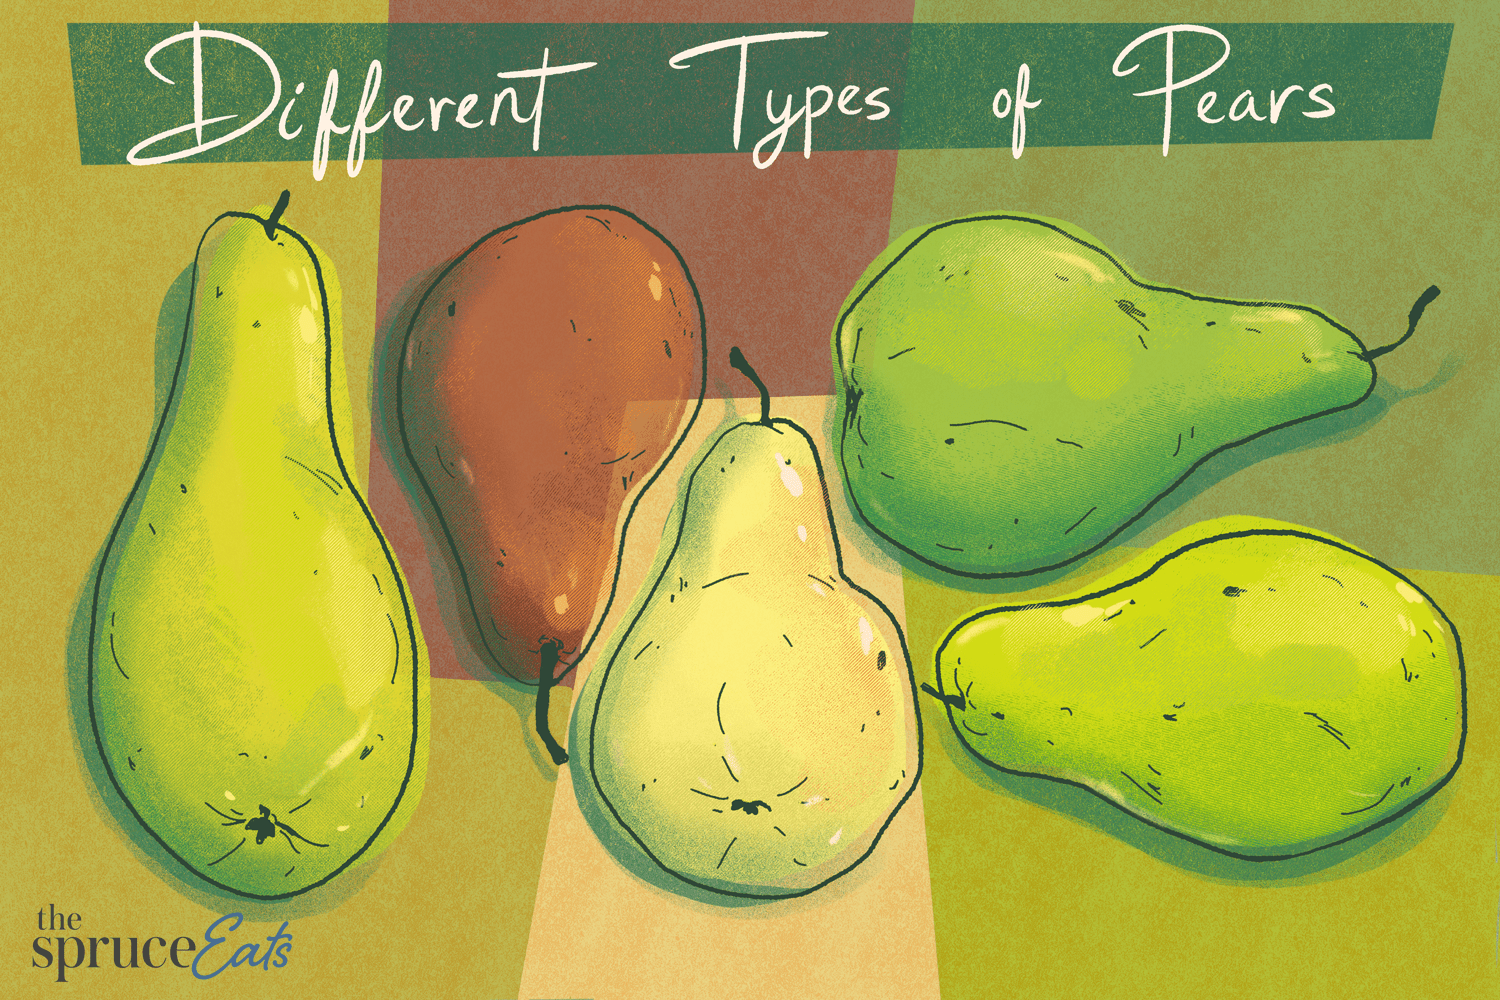 Different Types of Pears
the
spruceEats